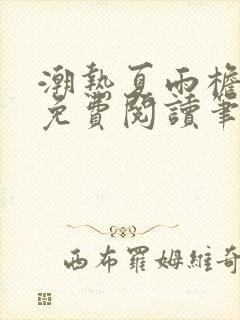 潮熱夏雨檐
免費閱讀筆
西布羅姆維奇